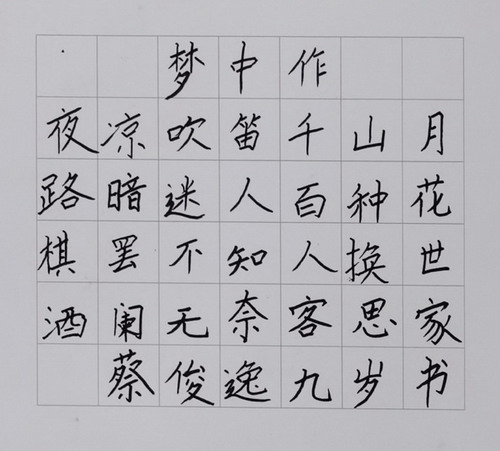 梦中作
夜凉吹笛千山月
路暗迷人百种花
棋罢不知人换世
酒阑无奈客思家
蔡俊逸九岁书